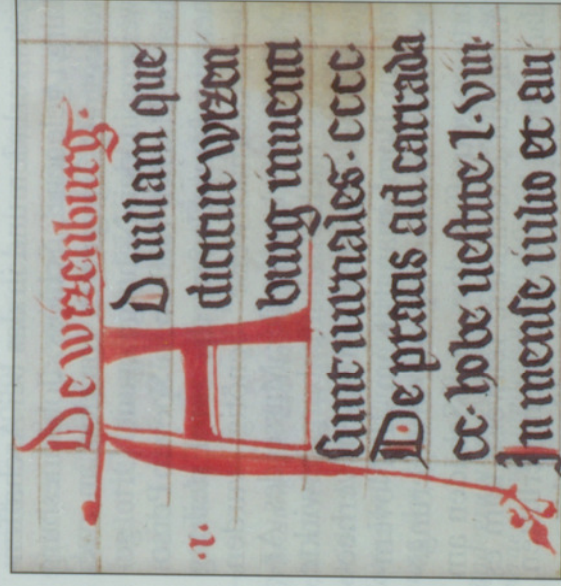 De wizenburg.
AD uillam que
dicitur wizen
burg inuenti
sunt iurnales. cccc.
De pratis ad carrada
cc. hobe uestite l. viii.
In mense iulio et au
.i.